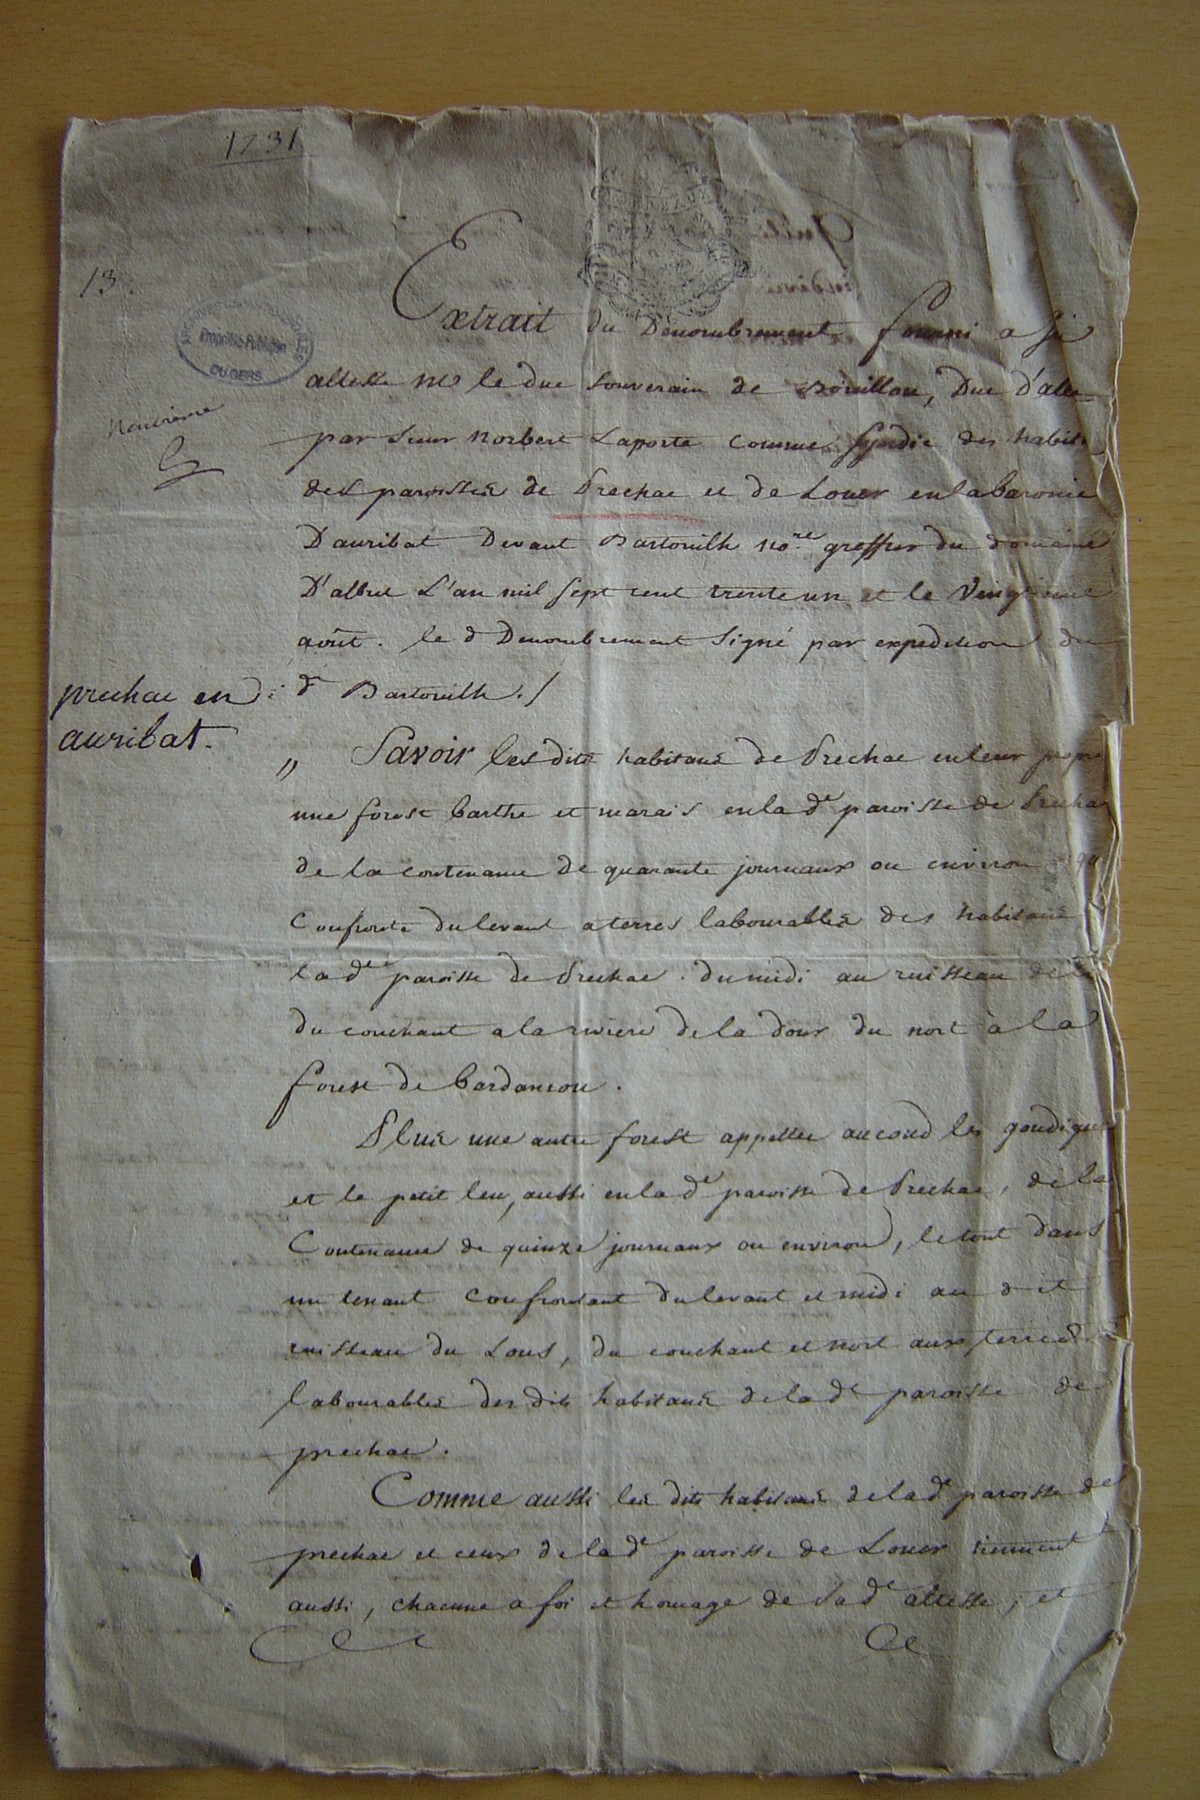 1731
13.
Extrait du Denombrement fourni a Sa
altesse M.r le duc souverain de Bouillon, Duc D'alb
Neuvieme
par Sieur Norbert Laporte comme Syndic des habits
des paroisses de Prechac et de Louer en la baronie
D'auribat Devant Bastouilh no.re greffier du domaine
D'albret L'an mil Sept cent trente un et le Vingtieme
août. le d Denombrement Signé par expedition du
d.t Bastouilh ./
prechac en
auribat.
„ Savoir Les dits habitans de Prechac en leur propre
une forest barthe et marais en la d.e paroisse de Precha
de la contenance de quarante journaux ou environ
Confronte du levant a terres labourables des habitans
la d.e paroisse de Prechac. du midi au ruisseau de
du couchant a la riviere de la dour du nort à la
forest de bardancou.
Plus une autre forest appellee au coud les goudigues
et le petit leu, aussi en la d.e paroisse de Prechac, de la
Contenance de quinze journaux ou environ, le tout dans
un tenant Confrontant du levant et midi au dit
ruisseau du Lous, du couchant et nort aux terres
labourables des dits habitans de la d.e paroisse de
prechac.
Comme aussi les dits habitans de la d.e paroisse de
prechac et ceux de la d.e paroisse de Louer tiennent
aussi, chacune a foi et homage de Sa d.e altesse, et